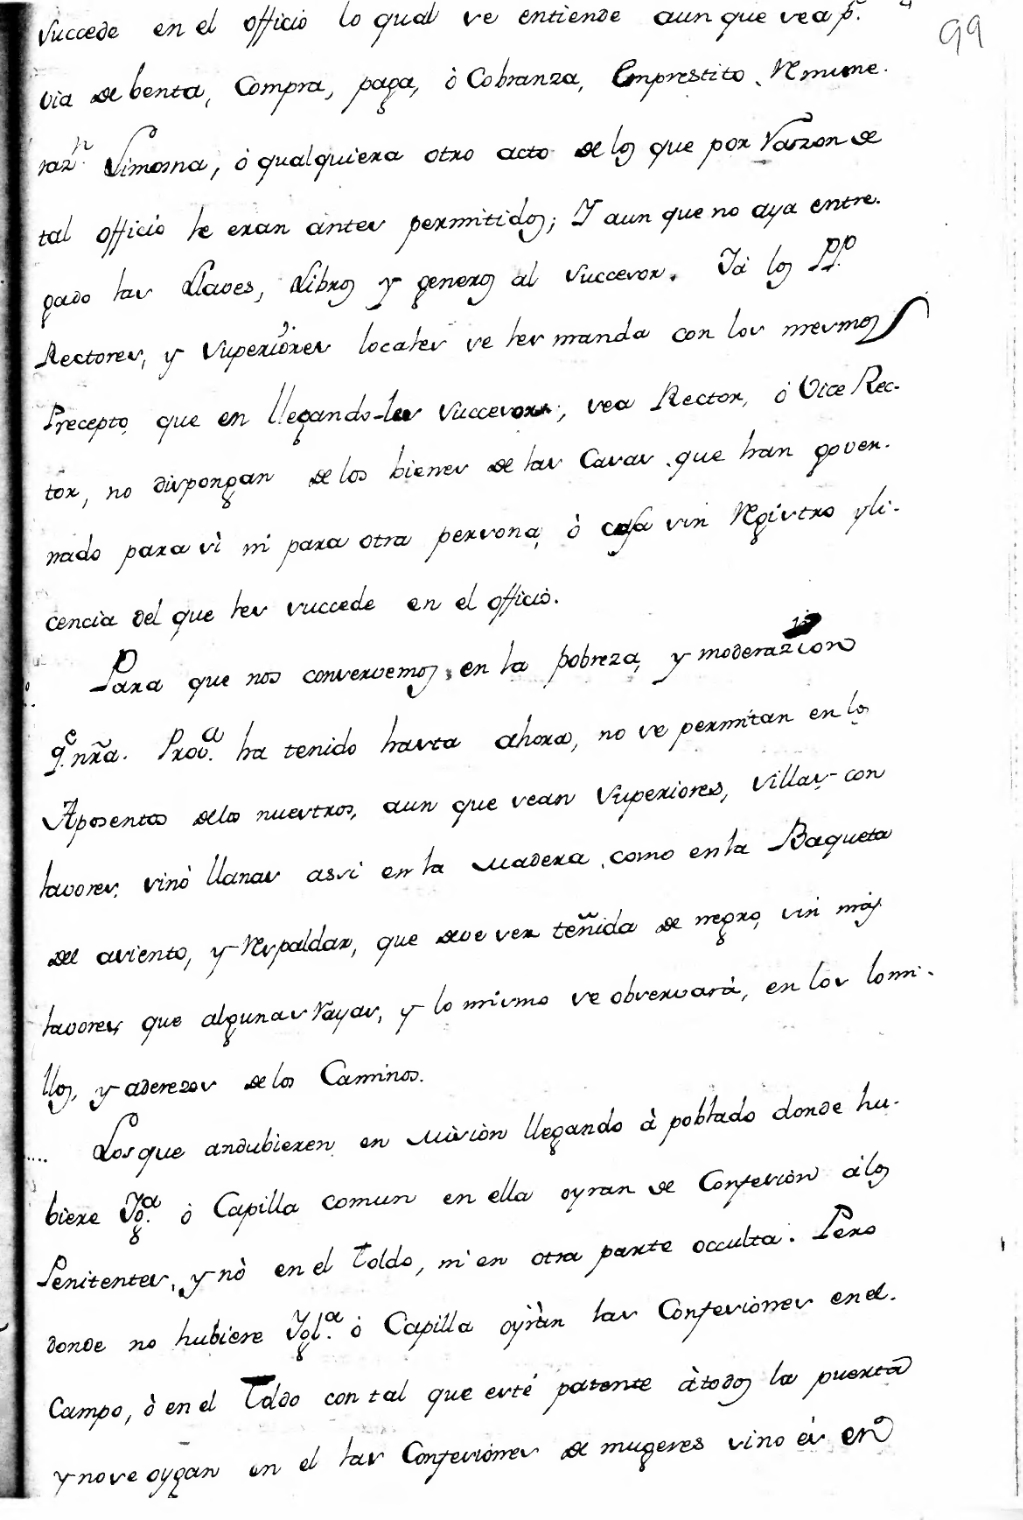 99
succede en el officio lo qual se entiende aun que sea pr.
via de benta, Compra, paga, ò Cobranza, Emprestito, Remune-
razn. Limosna, ò qualquiera otro acto de los que por Razon de
tal officio le eran antes permitidos; Y aun que no aya entre-
gado las Llaves, Libros y generos al Successor. Ya los PPs.
Rectores, y Superiores locales se les manda con los mesmos
Precepto, que en llegando-les Successor, sea Rector, ò Vice Rec-
tor, no dispongan de los bienes de las Casas que han gover-
nado para sì ni para otra persona, ò casa sin Registro y li-
cencia del que les succede en el officio.
Para que nos conservemos en la pobreza, y moderazion
qe. nrã. Prova. ha tenido hasta ahora, no se permitan en los
Aposentos delos nuestros, aun que sean Superiores, Sillas con
lavores, sinò llanas assi en la Madera, como en la Baqueta
del asiento, y Respaldar, que deve ser teñida de negro, sin más
lavores que algunas Rayas, y lo mismo se observará, en los lomi-
llos, y aderezos de los Caminos.
Los que andubieren en Missiòn llegando à poblado donde hu-
biere Yga. ò Capilla comun en ella oyran de Confesiòn àlos
Penitentes, y nò en el Toldo, ni en otra parte occulta. Pero
donde no hubiere Ygla. ò Capilla oyràn las Confesiones en el
Campo, ò en el Toldo con tal que esté patente àtodos la puerta
y no se oygan en el las Confesiones de mugeres sino és en